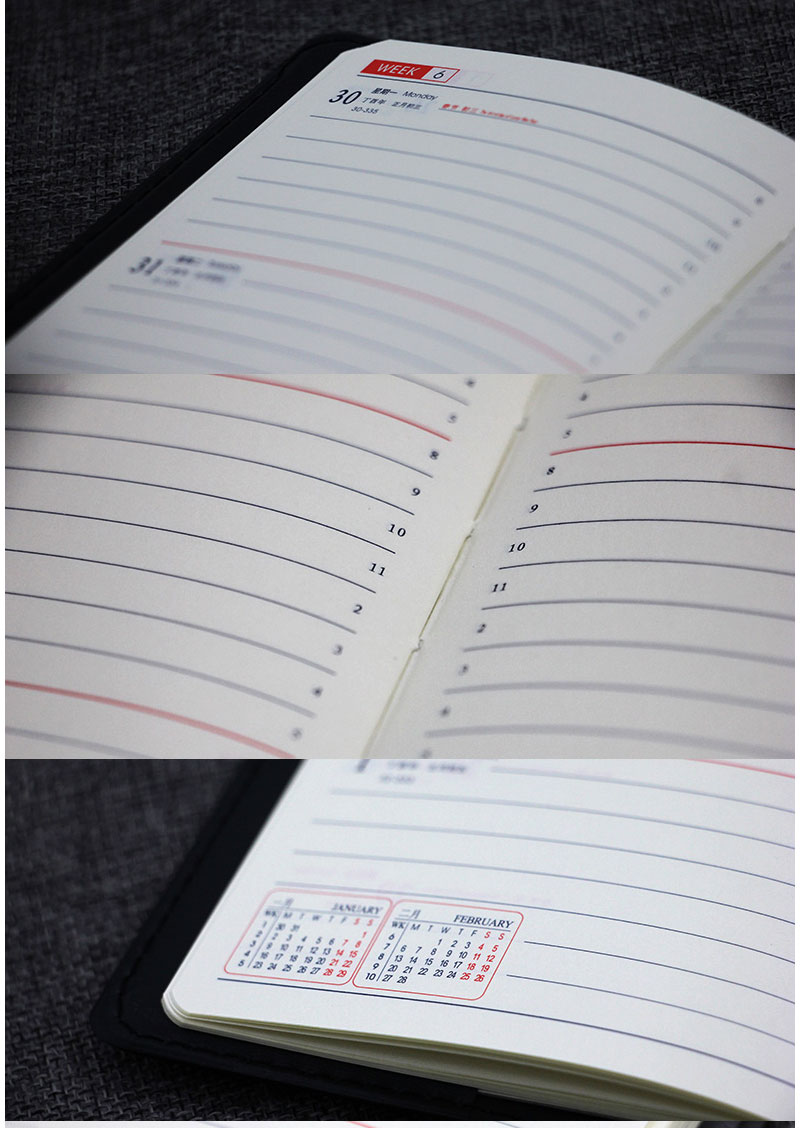 WEEK 6
30 星期一 Monday
丁酉年 正月初三
30-335
31
5
8
9
10
11
2
3
4
5
8
9
10
11
2
3
4
一月 JANUARY
WK M T W T F S S
1 30 31 1
2 2 3 4 5 6 7 8
3 9 10 11 12 13 14 15
4 16 17 18 19 20 21 22
5 23 24 25 26 27 28 29
二月 FEBRUARY
WK M T W T F S S
6 1 2 3 4 5
7 6 7 8 9 10 11 12
8 13 14 15 16 17 18 19
9 20 21 22 23 24 25 26
10 27 28